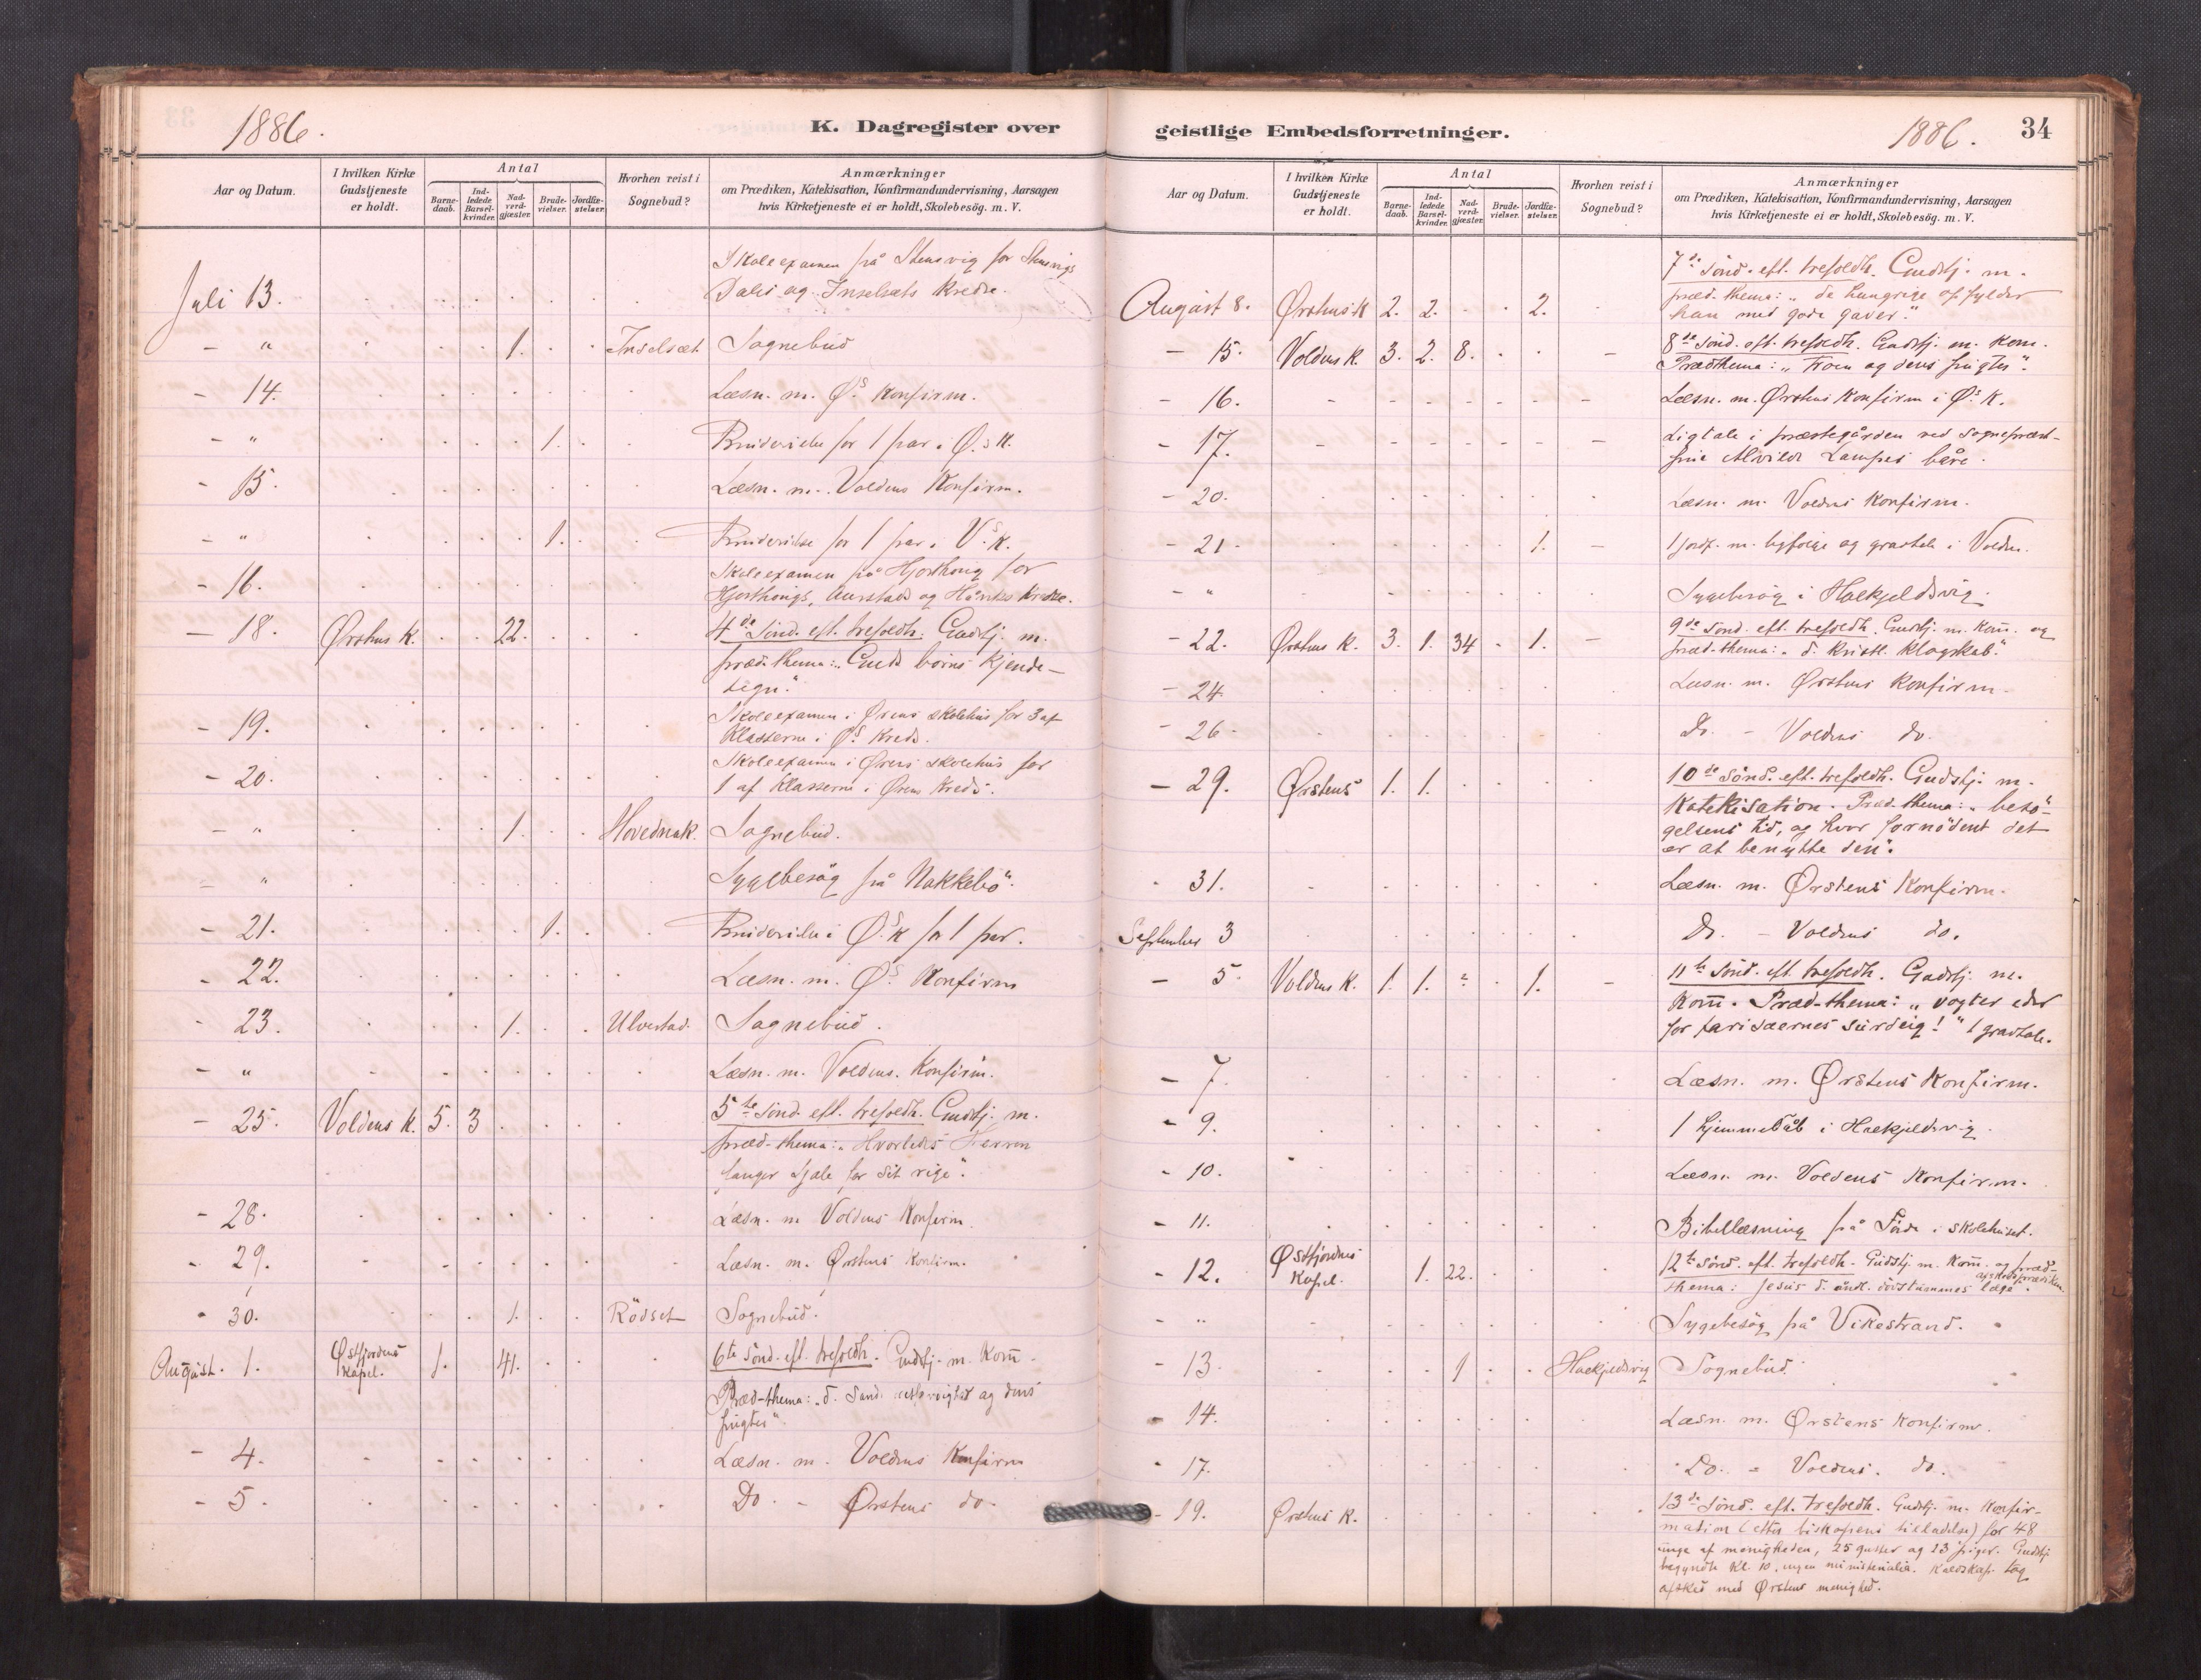 1886.
K. Dagregister over
Aar og Datum.
I hvilken Kirke Gudstjeneste er holdt.
Antal
Barnedaab.
Indledede Barselkvinder.
Nadverdgjæster.
Brudevielser.
Jordfæstelser.
Hvorhen reist i Sognebud?
Anmærkninger
om Prædiken, Katekisation, Konfirmandundervisning, Aarsagen
hvis Kirketjeneste ei er holdt, Skolebesög. m. V.
Skoleexamen på Stensvig for Stensvigs
Juli 13. Dals og Inselsets Kredse.
- " 1. Inselsæt Sognebud
- 14. Læsn. m. Ø.s Konfirm.
- " 1. Brudevielse for 1 par i Ø.s K.
- 15. Læsn. m. Voldens Konfirm.
- " 1. Brudevielse for 1 par i V.s K.
- 16. Skoleexamen på Hjorthoug for
Hjorthougs, Aurstads og Kredse.
- 18. Ørstens K. 22. 4de Sönd. eft. trefoldh. Gudstj. m.
præd. thema: „Guds börns kjende-
tegn."
- 19. Skoleexamen i Ørens skolehus for 3 af
Klasserne i Ø.s Kreds.
- 20. Skoleexamen i Ørens skolehus for
1 af Klasserne i Ørens Kreds.
- " 1. Hovednak. Sognebud.
- " Sygebesög på Nakkebö.
- 21. 1. Brudevielse i Ø.s K for 1 par.
- 22. Læsn. m. Ø.s Konfirm
- 23. 1. Ulvestad. Sognebud.
- " Læsn. m. Voldens. Konfirm.
- 25. Voldens K. 5. 3 5te Sönd. eft. trefoldh. Gudstj. m.
præd-thema: „Hvorledes Herren
fanger sjæle for sit rige".
- 28. Læsn. m Voldens Konfirm.
- 29. Læsn. m. Ørstens Konfirm.
- 30. 1. Rödset Sognebud.
August. 1. Østfjordens Kapel. 1. 41. 6te Sönd. eft. trefoldh. Gudstj. m. Kom̄.
Præd-thema: „d. Sande retfærdighed og dens
frugter".
- 4. Læsn. m. Voldens Konfirm
- 5. Do. - Ørstens do.
geistlige Embedsforretninger.
1886.
34
Aar og Datum.
I hvilken Kirke Gudstjeneste er holdt.
Antal
Barnedaab.
Indledede Barselkvinder.
Nadverdgjæster.
Brudevielser.
Jordfæstelser.
Hvorhen reist i Sognebud?
Anmærkninger
om Prædiken, Katekisation, Konfirmandundervisning, Aarsagen
hvis Kirketjeneste ei er holdt, Skolebesög. m. V.
7de Sönd. eft. trefoldh. Gudstj. m.
August 8. Ørstens K 2. 2. 2. præd. thema: „de hungrige opfylder
han med gode gaver."
- 15. Voldens K. 3. 2. 8. 8de Sönd. eft. trefoldh. Gudstj. m. Kom.
Prædthema: „Troen og dens frugter".
- 16. Læsn. m. Ørstens Konfirm i Ø.s K.
- 17. Ligtale i præstegården ved Sognepræst-
frue Alvilde Lampes båre.
- 20. Læsn. m. Voldens Konfirm.
- 21. 1. 1 jordf. m. ligfölge og gravtale i Volden.
- " Sygebesög i Halkjeldsvig.
- 22. Ørstens K. 3. 1. 34 1. 9de Sönd. eft. trefoldh. Gudstj. m. Kom̄. og
præd-thema: „d. Kristl. klogskab."
- 24 Læsn. m. Ørstens Konfirm.
- 26. Do. - Voldens do.
- 29. Ørstens 1. 1. 10de Sönd. eft. trefoldh. Gudstj. m.
Katekisation. Præd. thema: „besö-
gelsens tid, og hvor fornödent det
er at benytte den".
- 31. Læsn. m. Ørstens Konfirm.
September 3 Do. - Voldens do.
- 5. Voldens K. 1. 1. 2 1. 11te Sönd. eft. trefoldh. Gudstj. m.
Kom̄. Præd-thema: „vogter eder
for farisæernes surdeig!" 1 gravtale.
- 7. Læsn. m. Ørstens Konfirm.
- 9. 1 hjemmedåb i Halkjeldsvig.
- 10. Læsn. m. Voldens Konfirm.
- 11. Bibellæsning på i skolehuset.
- 12. Østfjordens Kapel. 1. 22. 12te Sönd. eft. trefoldh. Gudstj. m. Kom̄. og præd-
afskedsprædiken
thema: Jesus d. åndl. dövstummes læge".
- " Sygebesög på Vikestrand.
- 13. 1 Halkjeldsvig Sognebud.
- 14. Læsn. m. Ørstens Konfirm.
- 17. Do. - Voldens. do.
- 19. Ørstens K. 13de Sönd. eft. trefoldh. Gudstj. m. Konfir-
mation (efter biskopens tilladelse) for 48
unge af menigheden, 25 gutter og 23 piger. Gudstj.
begyndte Kl. 10, ingen ministerialia. Kaldskap. tog
afsked med Ørstens menighed.